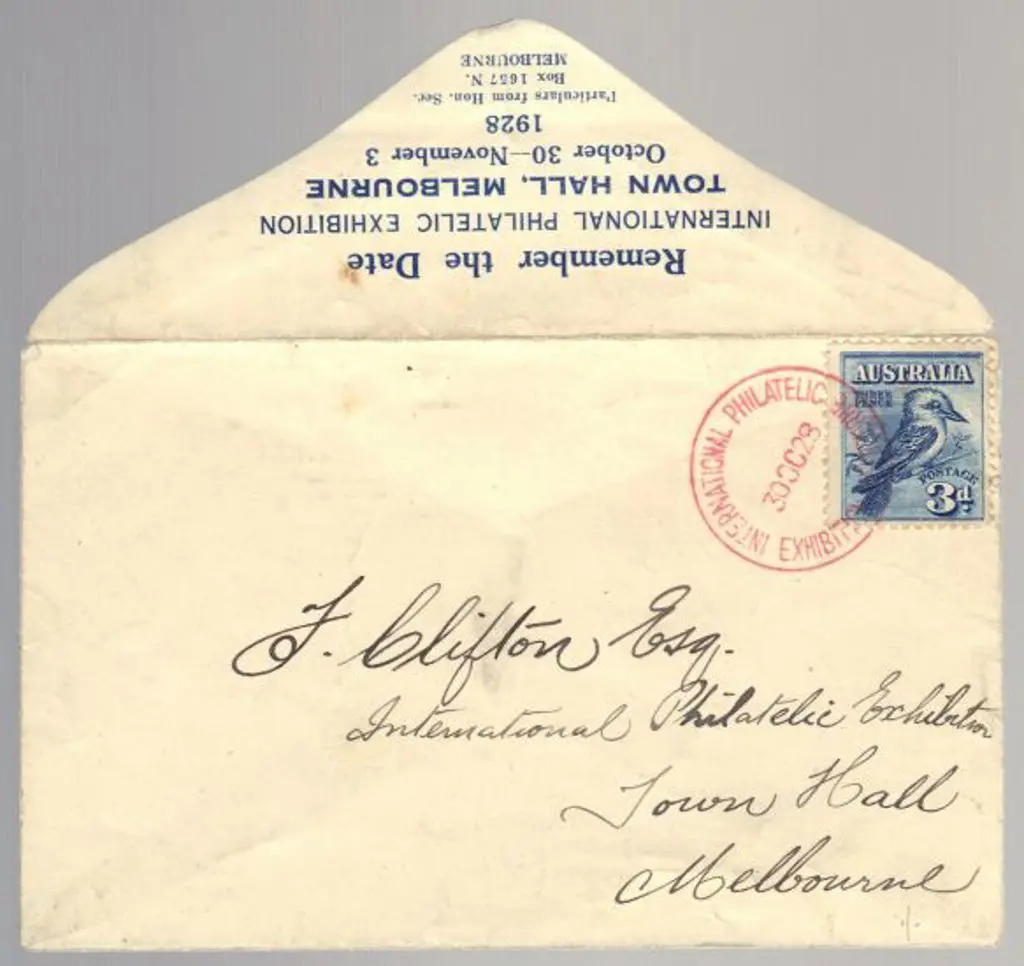 Remember the Date
INTERNATIONAL PHILATELIC EXHIBITION
TOWN HALL, MELBOURNE
October 30—November 3
1928
Particulars from Hon. Sec.
Box 1657 N.
MELBOURNE
AUSTRALIA
THREE
PENCE
POSTAGE
3d
INTERNATIONAL PHILATELIC
30 OC 28
EXHIBITION
F. Clifton Esq.
International Philatelic Exhibition
Town Hall
Melbourne